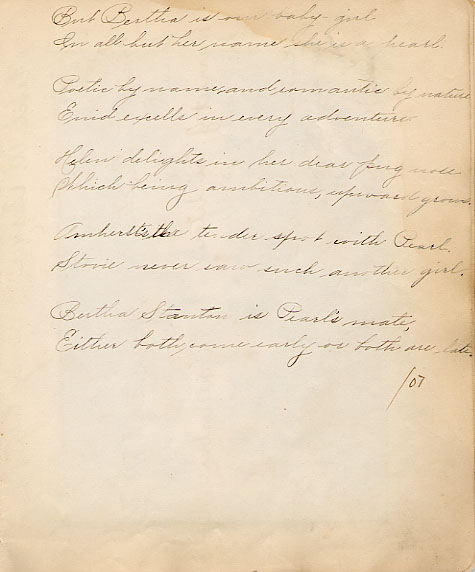 But Bertha is our baby-girl
In all but her name she is a pearl.
Poetic by name, and romantic by nature
Enid excells in every adventure
Helen delights in her dear pug nose
Which being ambitious, upward grows.
Amherst's the tender spot with Pearl
never saw such another girl.
Bertha Stanton is Pearl's mate,
Either both come early or both are late.
/07